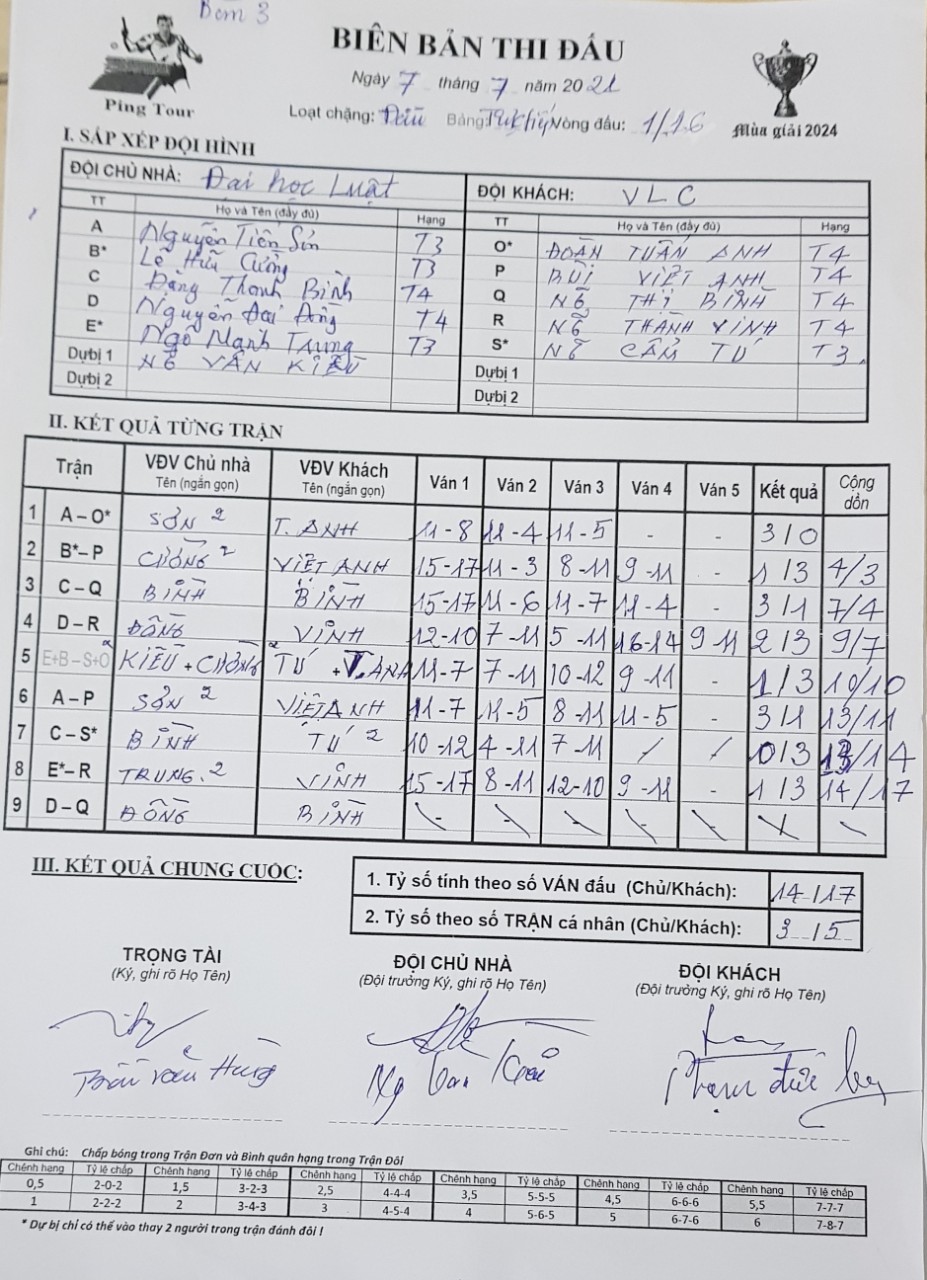 Bom 3
Ping Tour
BIÊN BẢN THI ĐẤU
Ngày 7 tháng 7 năm 2021
Loạt chặng: Bảng Vòng đấu: 1/16
Mùa giải 2024
I. SẮP XẾP ĐỘI HÌNH
ĐỘI CHỦ NHÀ: Đại học Luật ĐỘI KHÁCH: VLC
TT Họ và Tên (đầy đủ) Hạng TT Họ và Tên (đầy đủ) Hạng
A Nguyễn Tiến Sơn T3 O* ĐOÀN TUẤN ANH T4
B* Lê Hữu Cường T3 P BÙI VIỆT ANH T4
C Đặng Thanh Bình T4 Q NG THỊ BÌNH T4
D Nguyễn Đại Đồng T4 R NG THÀNH VINH T4
E* Ngô Mạnh Trung T3 S* NG CẨM TÚ T3
Dựbị 1 NG VĂN KIỀU Dựbị 1
Dựbị 2 Dựbị 2
II. KẾT QUẢ TỪNG TRẬN
Trận VĐV Chủ nhà VĐV Khách Ván 1 Ván 2 Ván 3 Ván 4 Ván 5 Kết quả Cộng dồn
Tên (ngắn gọn) Tên (ngắn gọn)
1 A – O* SƠN 2 T. ANH 11 - 8 11 - 4 11 - 5 - - 3/0
2 B* – P CƯỜNG 2 VIỆT ANH 15-17 11 - 3 8 - 11 9 - 11 - 1/3 4/3
3 C – Q BÌNH BÌNH 15-17 11 - 6 11 - 7 11 - 4 - 3/1 7/4
4 D – R ĐỒNG VINH 12-10 7 - 11 5 - 11 16-14 9 11 2/3 9/7
5 E+B – S+O KIỀU + CƯỜNG TÚ + V.ANH 11-7 7 - 11 10-12 9 - 11 - 1/3 10/10
6 A – P SƠN 2 VIỆTANH 11-7 11-5 8-11 11-5 - 3/1 13/11
7 C – S* BÌNH TÚ 2 10-12 4-11 7-11 / / 0/3 13/14
8 E* – R TRUNG. 2 VINH 15-17 8-11 12-10 9-11 - 1/3 14/17
9 D – Q ĐỒNG BÌNH
III. KẾT QUẢ CHUNG CUỘC:
1. Tỷ số tính theo số VÁN đấu (Chủ/Khách): 14/17
2. Tỷ số theo số TRẬN cá nhân (Chủ/Khách): 3/5
TRỌNG TÀI ĐỘI CHỦ NHÀ ĐỘI KHÁCH
(Ký, ghi rõ Họ Tên) (Đội trưởng Ký, ghi rõ Họ Tên) (Đội trưởng Ký, ghi rõ Họ Tên)
Trần Văn Hùng Ng Van Kiều Phạm đức
Ghi chú: Chấp bóng trong Trận Đơn và Bình quân hạng trong Trận Đôi
Chênh hạng Tỷ lệ chấp Chênh hạng Tỷ lệ chấp Chênh hạng Tỷ lệ chấp Chênh hạng Tỷ lệ chấp Chênh hạng Tỷ lệ chấp Chênh hạng Tỷ lệ chấp
0,5 2-0-2 1,5 3-2-3 2,5 4-4-4 3,5 5-5-5 4,5 6-6-6 5,5 7-7-7
1 2-2-2 2 3-4-3 3 4-5-4 4 5-6-5 5 6-7-6 6 7-8-7
* Dự bị chỉ có thể vào thay 2 người trong trận đánh đôi !